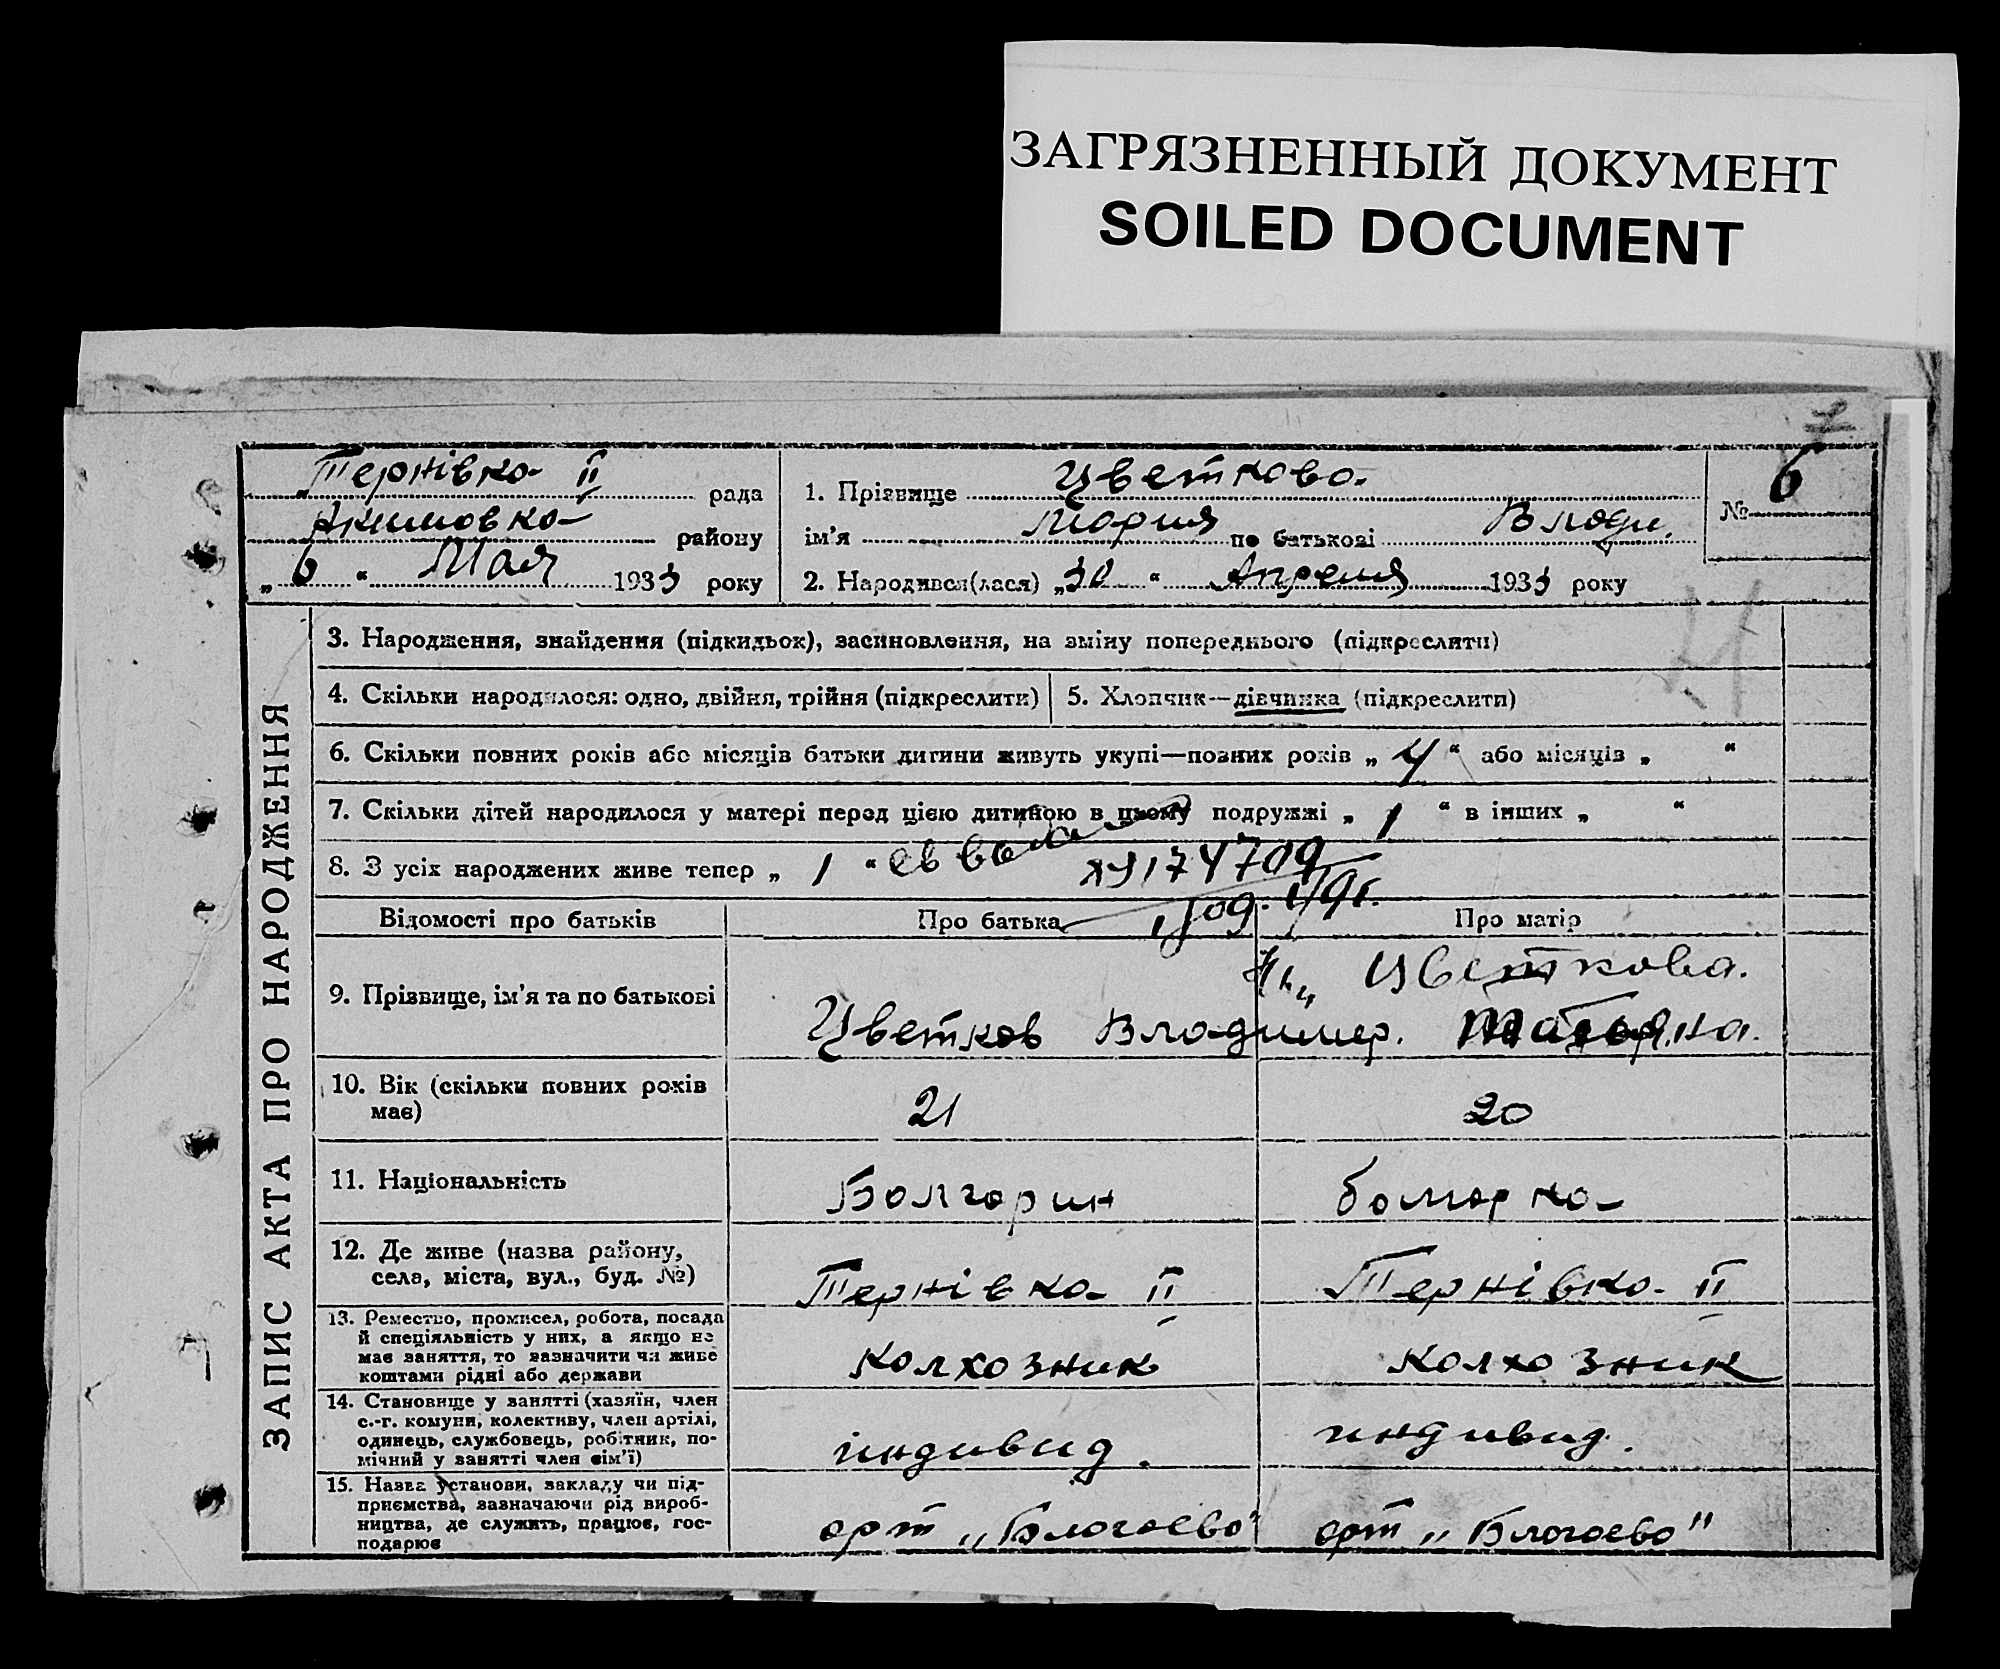 ЗАГРЯЗНЕННЫЙ ДОКУМЕНТ
SOILED DOCUMENT
Тернівка II рада
Акимовка району
„ 6 “ Мая 1933 року
1. Прізвище Цветкова
ім'я Мария по батькові Влади.
№ 6
2. Народився(лася) „30 “ Апреля 1933 року
ЗАПИС АКТА ПРО НАРОДЖЕННЯ
3. Народження, знайдення (підкидьок), засиновлення, на зміну попереднього (підкреслити)
4. Скільки народилося: одно, двійня, трійня (підкреслити) 5. Хлопчик—дівчинка (підкреслити)
6. Скільки повних років або місяців батьки дитини живуть укупі—повних років „ 4 “ або місяців „ “
7. Скільки дітей народилося у матері перед цією дитиною в цьому подружжі „ 1 “ в інших „ “
8. З усіх народжених живе тепер „ 1 “ св
174709
Відомості про батьків Про батька Про матір
9. Прізвище, ім'я та по батькові Цветков Владимер. Цветкова.
Татьяна.
10. Вік (скільки повних років
має) 21 20
11. Національність Болгарин болгарка
12. Де живе (назва району,
села, міста, вул., буд. №) Тернівка II Тернівка II
13. Ремество, промисел, робота, посада
й спеціяльність у них, а якщо не
має заняття, то зазначити чи живе
коштами рідні або держави колхозник колхозник
14. Становище у занятті (хазяїн, член
с.-г. комуни, колективу, член артілі,
одинець, службовець, робітник, по-
мічний у занятті член сім'ї) индивид. индивид.
15. Назва установи, закладу чи під-
приємства, зазначаючи рід вироб-
ництва, де служить, працює, гос-
подарює арт „Благоево" арт „Благоево"